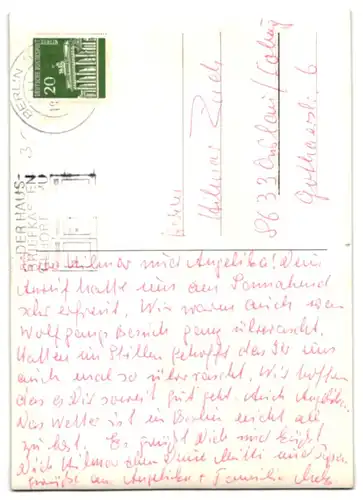 BERLIN
DEUTSCHE BUNDESPOST BERLIN
20
DER HAUS-
BRIEFKASTEN
GEHÖRT ZU
Herrn
Hilmar
8633
6
Hilmar und Angelika! Dein
Anruf hatte uns am Sonnabend
sehr erfreut. Wir waren auch von
Wolfgangs Besuch ganz überrascht.
Hatten im Stillen gehofft das Ihr uns
auch mal so überrascht. Wir hoffen
das es Dir soweit gut geht. Auch Angelika.
Das Wetter ist in Berlin nicht all
zu best. Es grüßt Dich und küßt
Dich Hilmar Deine Mutti und
Grüße an Angelika + Familie